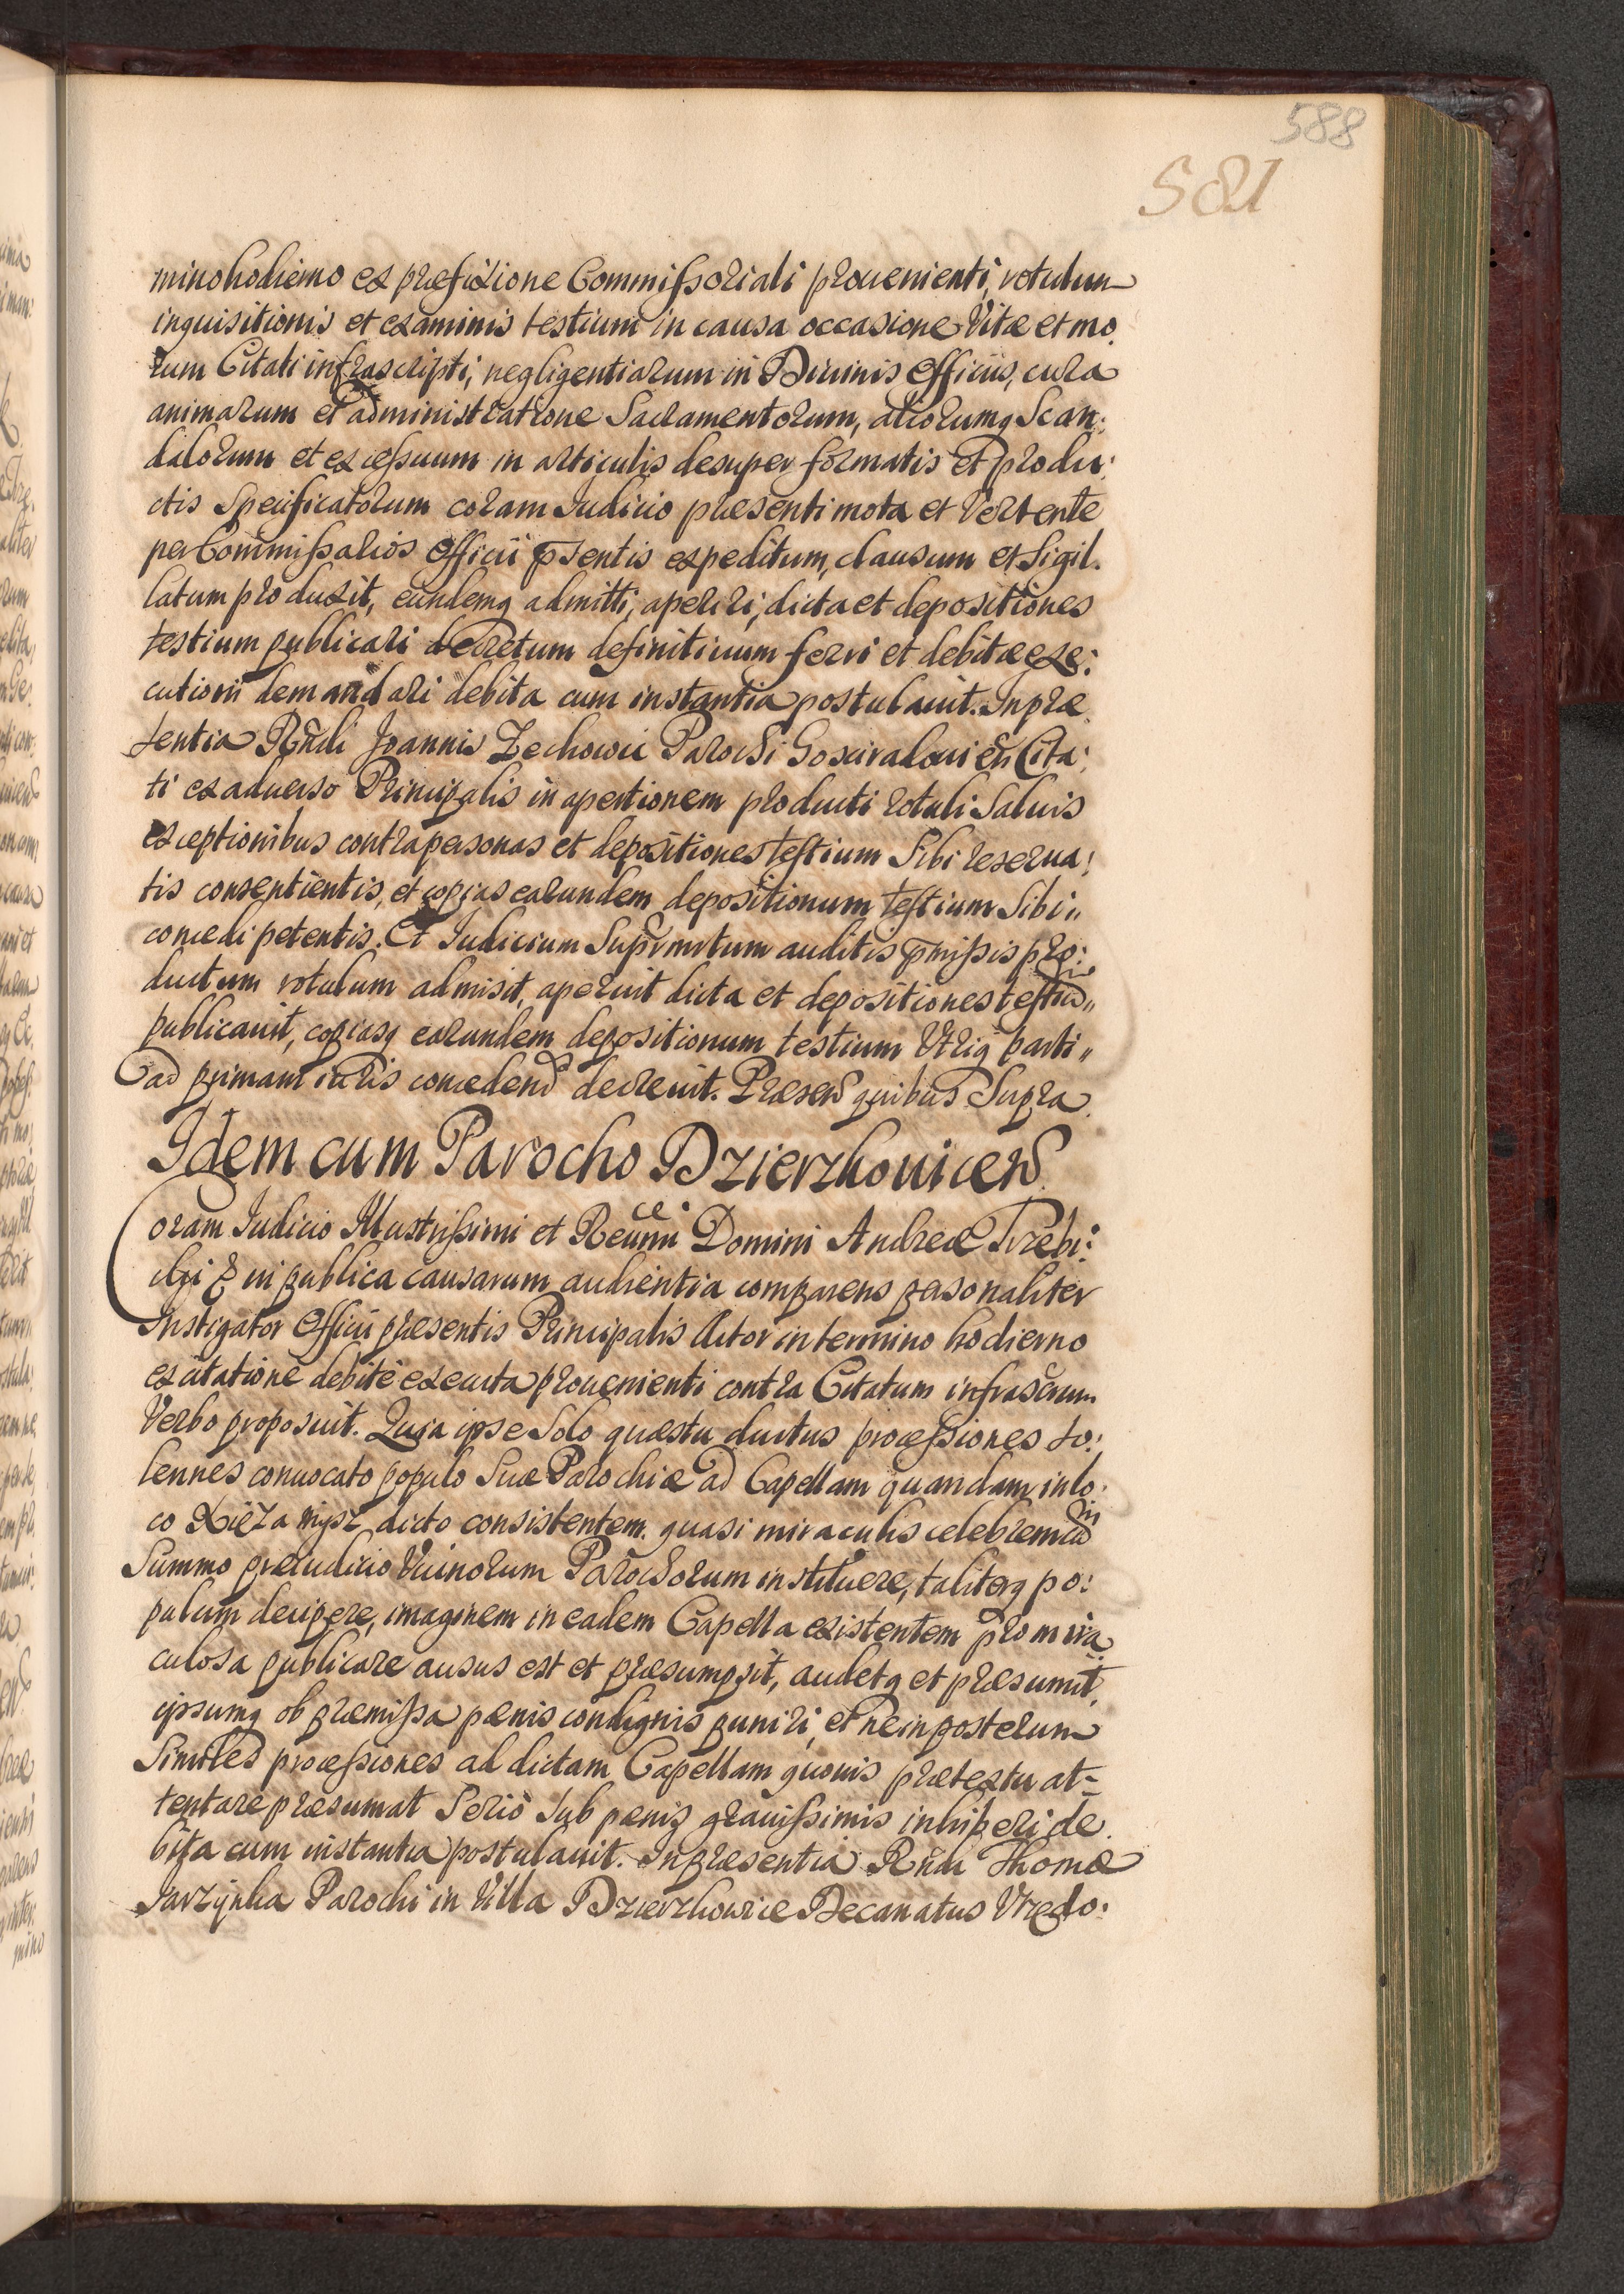 588
581
mino hodierno ex præfixione Commissoriali prouenienti, rotulum
inquisitionis et examinis testium in causa occasione Vitæ et mo,
rum Citati infrascripti, negligentiarum in Diuinis Officiis, cura
animarum et administratione Sacramentorum, aliorumq Scan:
dalorum et excessuum in articulis desuper formatis et produ:
ctis Specificatorum coram Iudicio præsenti mota et Vertente
per Commissarios Officii pñsentis expeditum, clausum et Sigil.
latum produxit, eundemq admitti, aperiri, dicta et depositiones
testium publicari decretum definitiuum ferri et debitæ exe:
cutioni demandari debita cum instantia postulauit. In præ,
sentia Rndi Joannis Zechowic Parochi Cita:
ti ex aduerso Principalis in apertionem producti rotuli Saluis
exceptionibus contra personas et depositiones testium Sibi reserua:
tis consentientis, et copias earundem depositionum testium Sibi"
concedi petentis. Et Iudicium auditis pmissis pro:
ductum rotulum admisit, aperuit dicta et depositiones testiu"
publicauit, copiasq earundem depositionum testium Vtriq parti"
ad primam iuris concedend decreuit. Præsen quibus Supra.
Idem cum Parocho Dzierzkouicen.
Coram Iudicio Illustrissimi et Reuerñi Domini Andreæ Trzebi:
cki & in publica causarum audientia comparens personaliter
Instigator Officii præsentis Principalis Actor in termino hodierno
ex citatione debitè executa prouenienti contra Citatum infrascrum
Verbo proposuit. Quia ipse Solo quæstu ductus processiones so:
lennes conuocato populo Suæ Parochiæ ad Capellam quandam in lo:
co Xięża dicto consistentem quasi miraculis celebrem in
Summo præiudicio Vicinorum Parochorum instituere, taliterq po:
pulum decipere, imaginem in eadem Capella existentem pro mira
culosa publicare ausus est et præsumpsit, audetq et præsumit,
ipsumq ob præmissa pænis condignis puniri, et ne in posterum
Similes processiones ad dictam Capellam quouis prætextu at=
tentare præsumat Seriò Sub pænis grauissimis inhiberi de
bita cum instantia postulauit. In præsentia Rndi Thomæ
Jarzynka Parochi in Villa Dzierzkowice Decanatus Vrzędo: